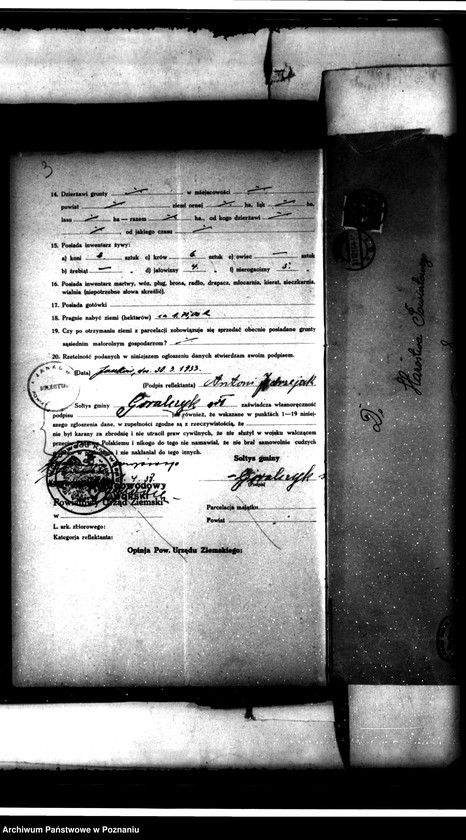 3
14. Dzierżawi grunty — w miejscowości —
powiat — ziemi ornej — ha, łąk — ha,
lasu — ha — razem — ha., od kogo dzierżawi
—, od jakiego czasu —
15. Posiada inwentarz żywy:
a) koni 2 sztuk c) krów 6 sztuk e) owiec — sztuk
b) źrebiąt — „ d) jałowizny 4 „ f) nierogacizny 5 „
16. Posiada inwentarz martwy, wóz, pług, brona, radło, drapacz, młocarnia, kierat, sieczkarnia,
wialnia (niepotrzebne słowa skreślić).
17. Posiada gotówki
18. Pragnie nabyć ziemi (hektarów)
19. Czy po otrzymaniu ziemi z parcelacji zobowiązuje się sprzedać obecnie posiadane grunty
sąsiednim małorolnym gospodarzom? —
20. Rzetelność podanych w niniejszem ogłoszeniu danych stwierdzam swoim podpisem.
(Data) dn. 30.3.1933.
(Podpis reflektanta) Antoni Jędrzejak
Sołtys gminy Góralczyk zaświadcza własnoręczność
podpisu jak również, że wskazane w punktach 1—19 niniej-
szego zgłoszenia dane, w zupełności zgodne są z rzeczywistością, że
nie był karany za zbrodnię i nie utracił praw cywilnych, że nie służył w wojsku walczącem
przeciw Polskiemu i nikogo do tego nie namawiał, że nie brał samowolnie cudzych
i nie nakłaniał do tego innych.
Sołtys gminy
Góralczyk
Podpis
Powiatowy Urząd Ziemski
w
L. ark. zbiorowego:
Kategorja reflektanta:
Parcelacja majątku
Powiat
Opinja Pow. Urzędu Ziemskiego:
SOŁECTWO
Archiwum Państwowe w Poznaniu